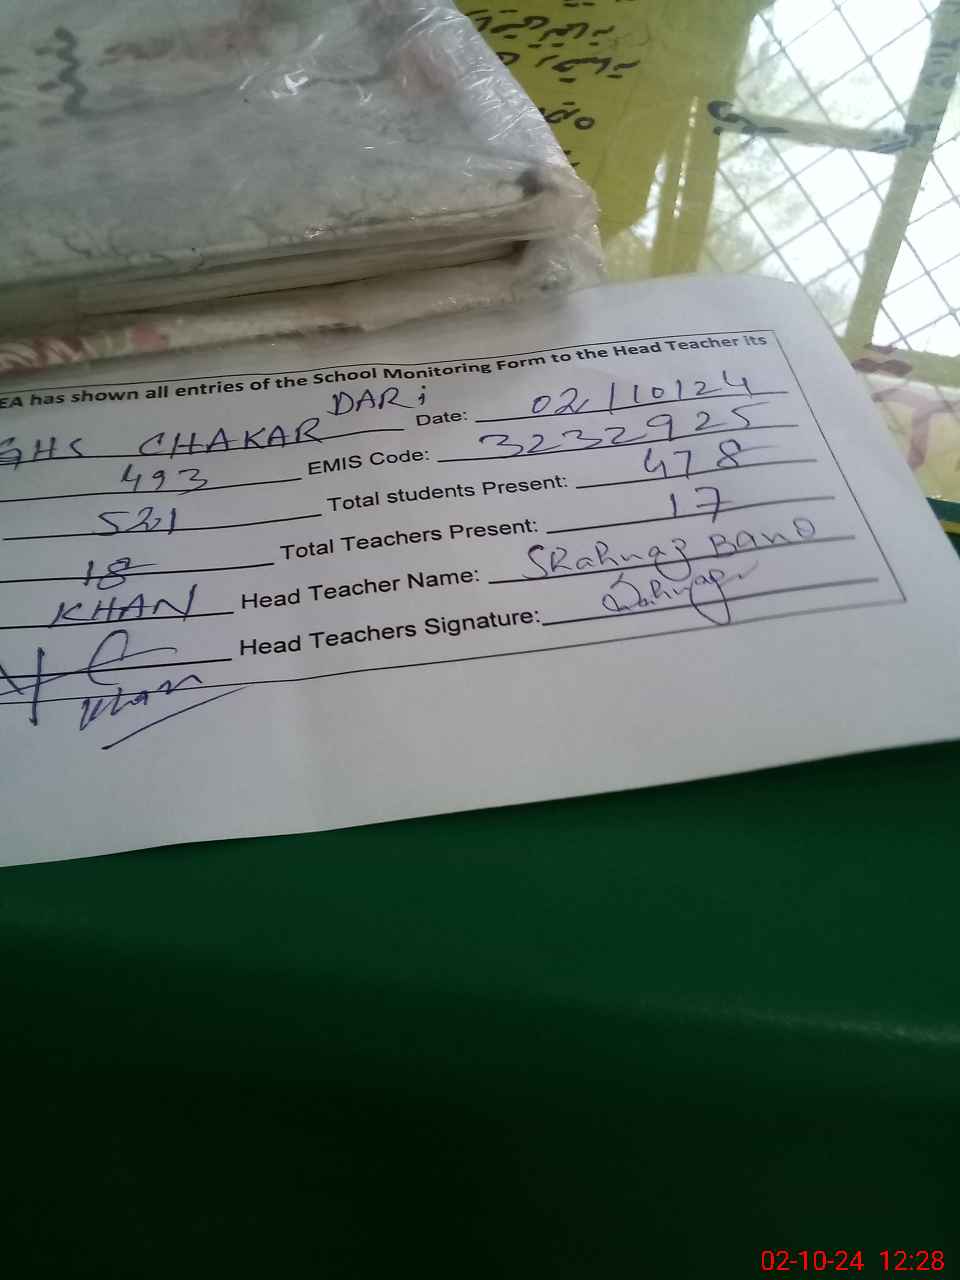 EA has shown all entries of the School Monitoring Form to the Head Teacher its
GHS CHAKAR DARi Date: 02/10/24
493 EMIS Code: 3232925
521 Total students Present: 478
18 Total Teachers Present: 17
KHAN Head Teacher Name: Shahnaz Bano
Khan Head Teachers Signature:
02-10-24 12:28